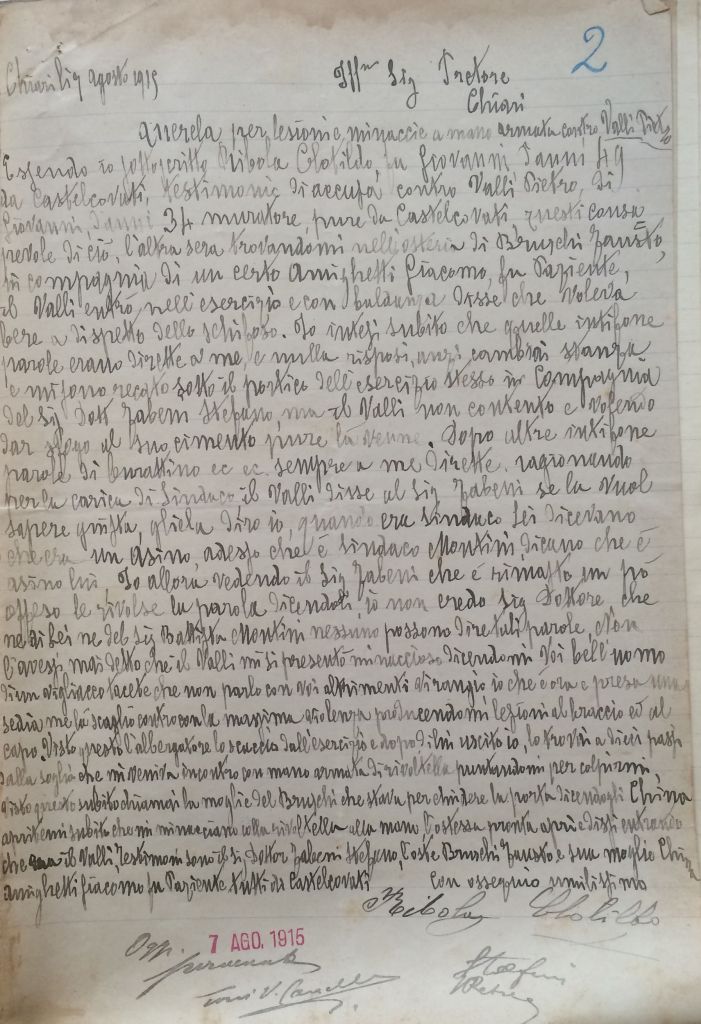 2
Chiari li 7 agosto 1915 Ill.mo Sig Pretore
Chiari
Querela per lesioni e minaccie a mano armata contro Valli Pietro
Essendo io sottoscritto Ribola Clotildo, fu Giovanni, d'anni 49
da Castelcovati, testimonio di accusa contro Valli Pietro, di
Giovanni, d'anni 34 muratore, pure da Castelcovati, questi consa
pevole di ciò, l'altra sera trovandomi nell'osteria di Bruschi Fausto,
in compagnia di un certo Amighetti Giacomo, fu Paziente,
il Valli entrò nell'esercizio e con baldanza disse che voleva
bere a dispetto dello schifoso. Io intesi subito che quelle
parole erano dirette a me, e nulla risposi, anzi cambiai stanza
e mi sono recato sotto il portico dell'esercizio stesso in compagnia
del Sig Dott Zabeni Stefano, ma il Valli non contento e volendo
dar sfogo al suo cimento pure là venne. Dopo altre
parole di burattino ec ec. sempre a me dirette, ragionando
per la carica di Sindaco il Valli disse al Sig Zabeni se la vuol
sapere giusta, gliela dirò io, quando era sindaco Lei dicevano
che era un asino, adesso che è sindaco Montini, dicano che è
asino lui, Io allora vedendo il Sig Zabeni che è rimasto un pò
offeso le rivolse la parola dicendoli, io non credo Sig Dottore che
ne di Lei ne del Sig Battista Montini nessuno possono dire tali parole, Non
l'avessi mai detto che il Valli mi si presentò minaccioso dicendomi Voi bell'uomo
d'un vigliacco tacete che non parlo con voi altrimenti vi rangio io che è ora e presa una
sedia me la scagliò contro con la massima violenza producendomi lesioni al braccio ed al
capo. Visto questo l'albergatore lo scacciò dall'esercizio e dopo di lui uscito io, lo trovai a dieci passi
dalla soglia che mi veniva incontro con mano armata di rivoltella puntandomi per colpirmi,
visto questo subito chiamai la moglie del Bruschi che stava per chiudere la porta dicendogli Chiara
apritemi subito che mi minacciano colla rivoltella alla mano. L'ostessa pronta aprì e dissi entrando
che era il Valli, Testimoni sono il Sig. Dottor Zabeni Stefano, l'oste Bruschi Fausto e sua moglie Chiara
Amighetti Giacomo fu Paziente tutti da Castelcovati con ossequio umilissimo
Ribola Clotildo
7 AGO. 1915